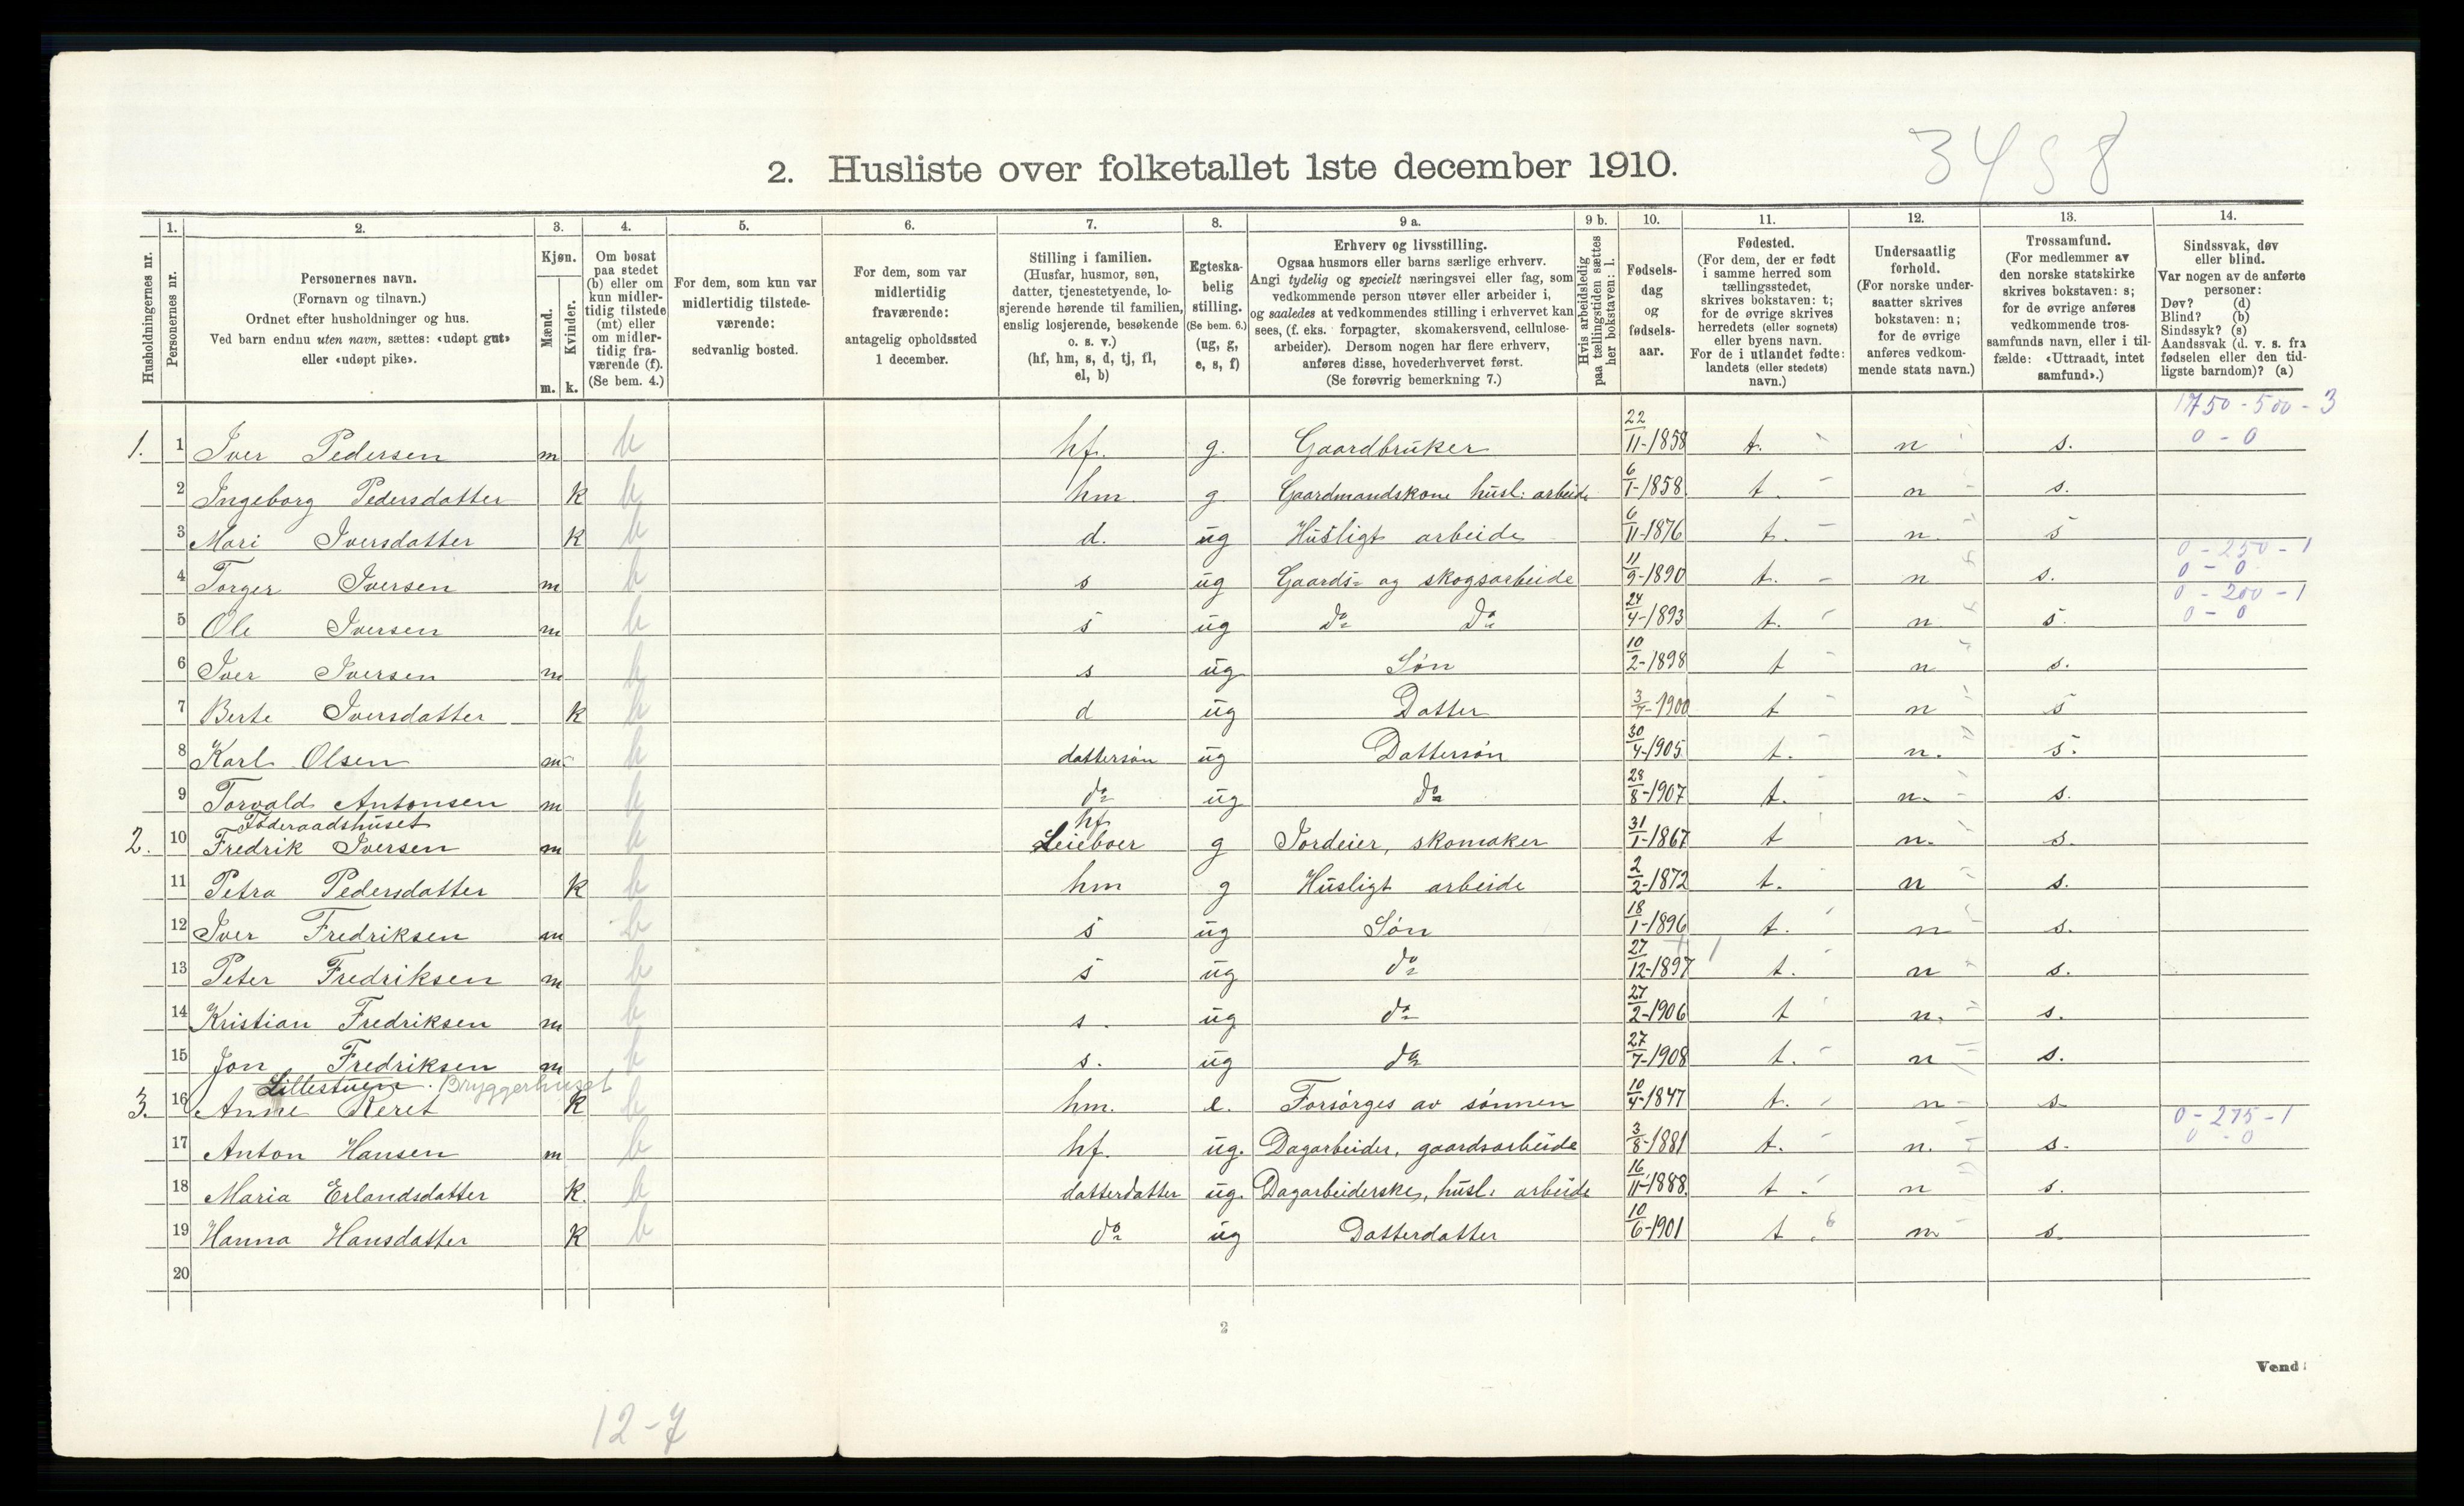 3458
2. Husliste over folketallet 1ste december 1910.
1. 2. 3. 4. 5. 6. 7. 8. 9 a. 9 b. 10. 11. 12. 13. 14.
Husholdningernes nr.
Personernes nr.
Personernes navn.
(Fornavn og tilnavn.)
Ordnet efter husholdninger og hus.
Ved barn endnu uten navn, sættes: «udøpt gut»
eller «udøpt pike».
Kjøn.
Mænd.
Kvinder.
m. k.
Om bosat
paa stedet
(b) eller om
kun midler-
tidig tilstede
(mt) eller
om midler-
tidig fra-
værende (f).
(Se bem. 4.)
For dem, som kun var
midlertidig tilstede-
værende:
sedvanlig bosted.
For dem, som var
midlertidig
fraværende:
antagelig opholdssted
1 december.
Stilling i familien.
(Husfar, husmor, søn,
datter, tjenestetyende, lo-
sjerende hørende til familien,
enslig losjerende, besøkende
o. s. v.)
(hf, hm, s, d, tj, fl,
el, b)
Egteska-
belig
stilling.
(Se bem. 6.)
(ug, g,
e, s, f)
Erhverv og livsstilling.
Ogsaa husmors eller barns særlige erhverv.
Angi tydelig og specielt næringsvei eller fag, som
vedkommende person utøver eller arbeider i,
og saaledes at vedkommendes stilling i erhvervet kan
sees, (f. eks. forpagter, skomakersvend, cellulose-
arbeider). Dersom nogen har flere erhverv,
anføres disse, hovederhvervet først.
(Se forøvrig bemerkning 7.)
Hvis arbeidsledig
paa tællingstiden sættes
her bokstaven: l.
Fødsels-
dag
og
fødsels-
aar.
Fødested.
(For dem, der er født
i samme herred som
tællingsstedet,
skrives bokstaven: t;
for de øvrige skrives
herredets (eller sognets)
eller byens navn.
For de i utlandet fødte:
landets (eller stedets)
navn.)
Undersaatlig
forhold.
(For norske under-
saatter skrives
bokstaven: n;
for de øvrige
anføres vedkom-
mende stats navn.)
Trossamfund.
(For medlemmer av
den norske statskirke
skrives bokstaven: s;
for de øvrige anføres
vedkommende tros-
samfunds navn, eller i til-
fælde: «Uttraadt, intet
samfund».)
Sindssvak, døv
eller blind.
Var nogen av de anførte
personer:
Døv? (d)
Blind? (b)
Sindssyk? (s)
Aandssvak (d. v. s. fra
fødselen eller den tid-
ligste barndom)? (a)
1750 - 500 - 3
1. 1 Iver Pedersen m b hf. g. Gaardbruker 22/11-1858 t. n s. 0 - 0
2 Ingeborg Pedersdatter k b hm g. Gaardmandskone husl: arbeide 6/1-1858 t. n s.
3 Mari Iversdatter k b d. ug Husligt arbeide 6/11-1876 t. n. s
0 - 250 - 1
4 Torger Iversen m b s ug Gaards- og skogsarbeide 11/9-1890 t. n s. 0 - 0
0 - 200 - 1
5 Ole Iversen m b s ug do do 24/4-1893 t. n s. 0 - 0
6 Iver Iversen m b s ug Søn 10/2-1898 t n s.
7 Berte Iversdatter k b d ug Datter 3/7-1900 t n s
8 Karl Olsen m b dattersøn ug Dattersøn 30/4-1905 t. n. s.
9 Torvald Antonsen m b do ug do 28/8-1907 t. n. s.
Føderaadshuset hf
2. 10 Fredrik Iversen m b Leieboer g Jordeier, skomaker 31/1-1867 t n. s.
11 Petra Pedersdatter k b hm g Husligt arbeide 2/2-1872 t. n s.
12 Iver Fredriksen m b s ug Søn 18/1-1896 t. n s.
13 Peter Fredriksen m b s ug do 27/12-1897 t. n s.
14 Kristian Fredriksen m b s. ug do 27/2-1906 t n. s.
15 Jon Fredriksen m b s. ug do 27/7-1908 t. n s.
Lillestuen. Bryggerhuset
3. 16 Anne Keret k b hm. e. Forsørges av sønnen 10/4-1847 t. n s
0 - 275 - 1
17 Anton Hansen m b hf. ug. Dagarbeider, gaardsarbeide 3/8-1881 t. n. s. 0 - 0
18 Maria Erlandsdatter k. b datterdatter ug. Dagarbeiderske, husl: arbeide 16/11-1888. t. n s.
19 Hanna Hansdatter k b do ug Datterdatter 10/6-1901 t. 6 n s.
20
2
Vend!
12-7